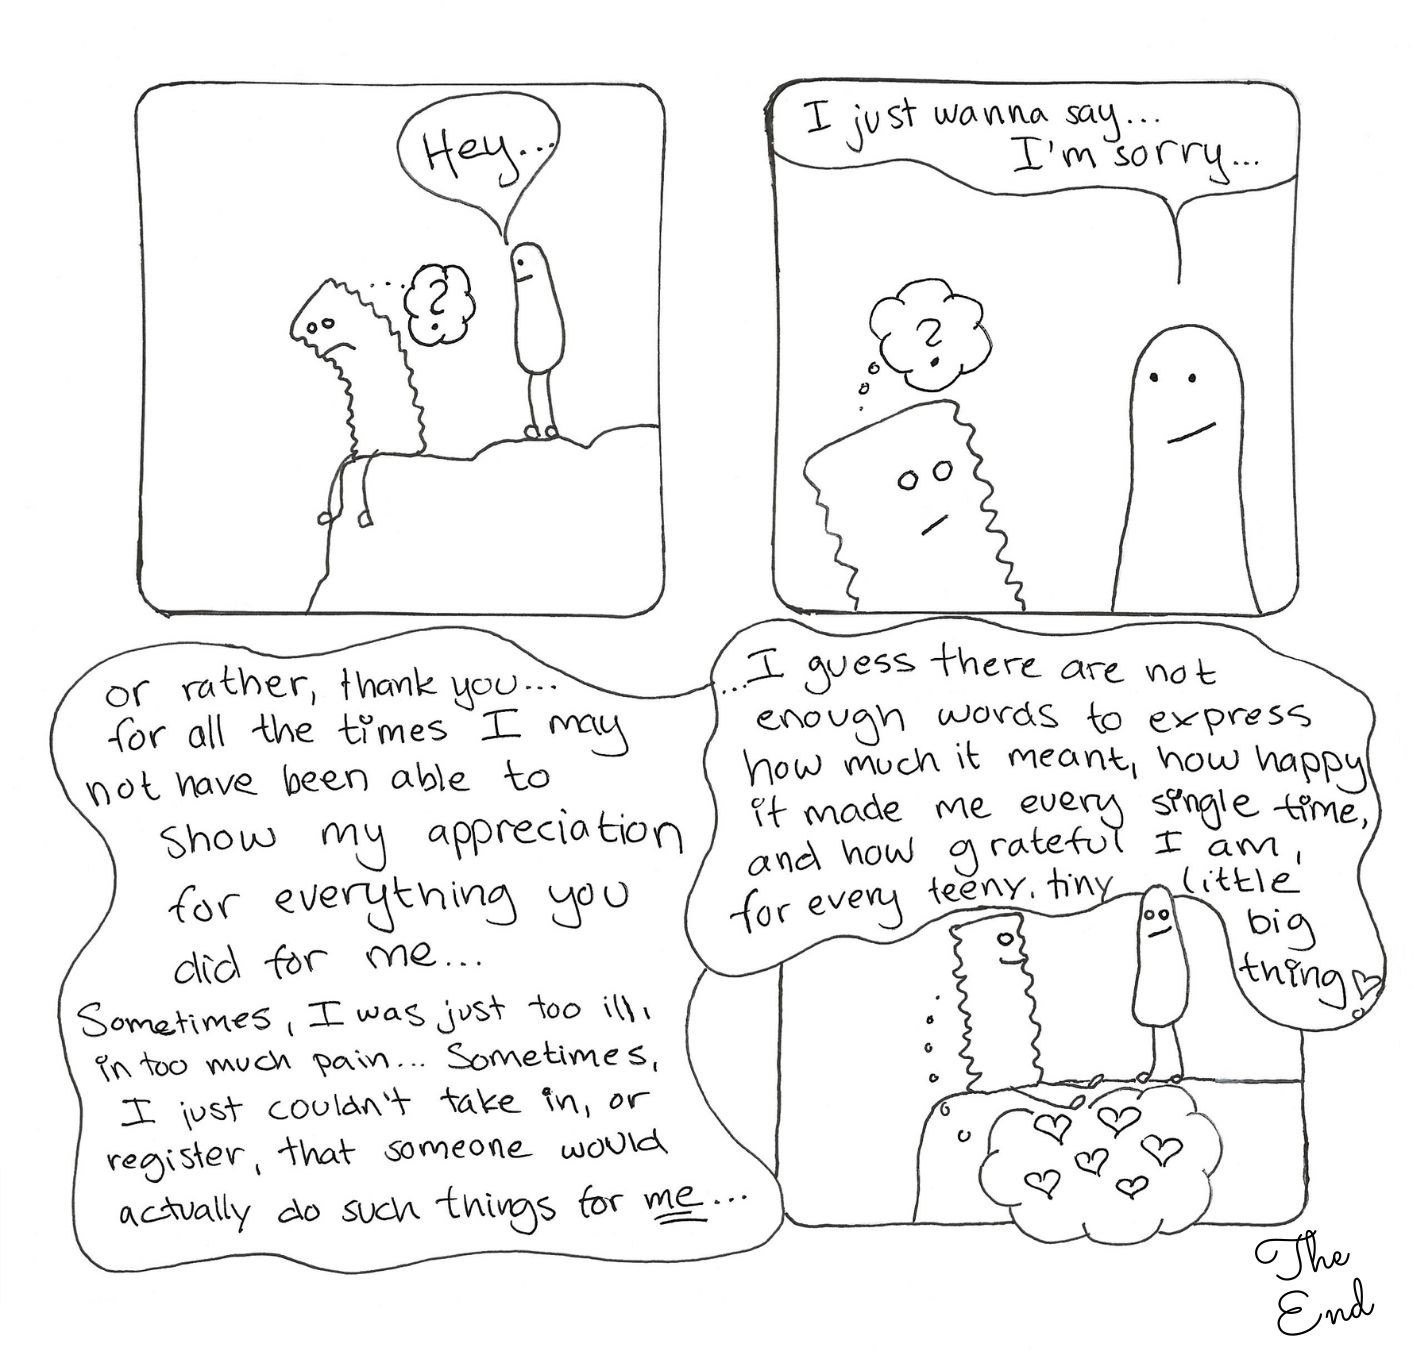 Hey...
?
I just wanna say...
I'm sorry...
?
or rather, thank you...
for all the times I may
not have been able to
show my appreciation
for everything you
did for me...
Sometimes, I was just too ill,
in too much pain... Sometimes,
I just couldn't take in, or
register, that someone would
actually do such things for me...
...I guess there are not
enough words to express
how much it meant, how happy
it made me every single time,
and how grateful I am,
for every teeny, tiny little
big
thing
The
End